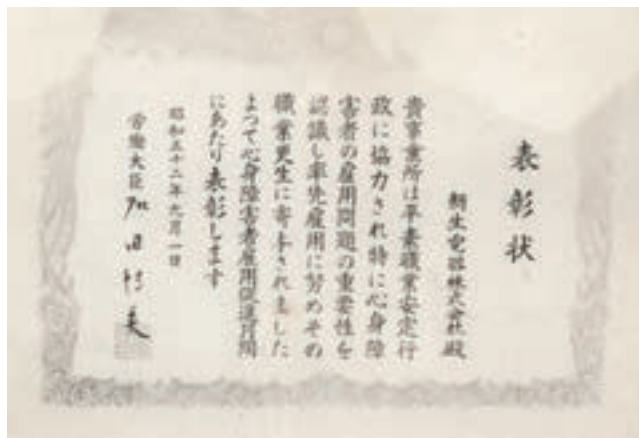 表彰状
桐生電器株式会社殿
貴事業所は平素職業安定行
政に協力され特に心身障
害者の雇用問題の重要性を
認識し率先雇用に努めその
職業更生に寄与されました
よつて心身障害者雇用促進月間
にあたり表彰します
昭和五十二年九月一日
労働大臣 石田博英